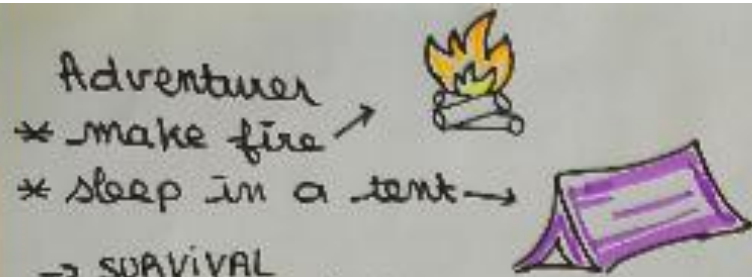 Adventurer
* make fire →
* sleep in a tent →
→ SURVIVAL